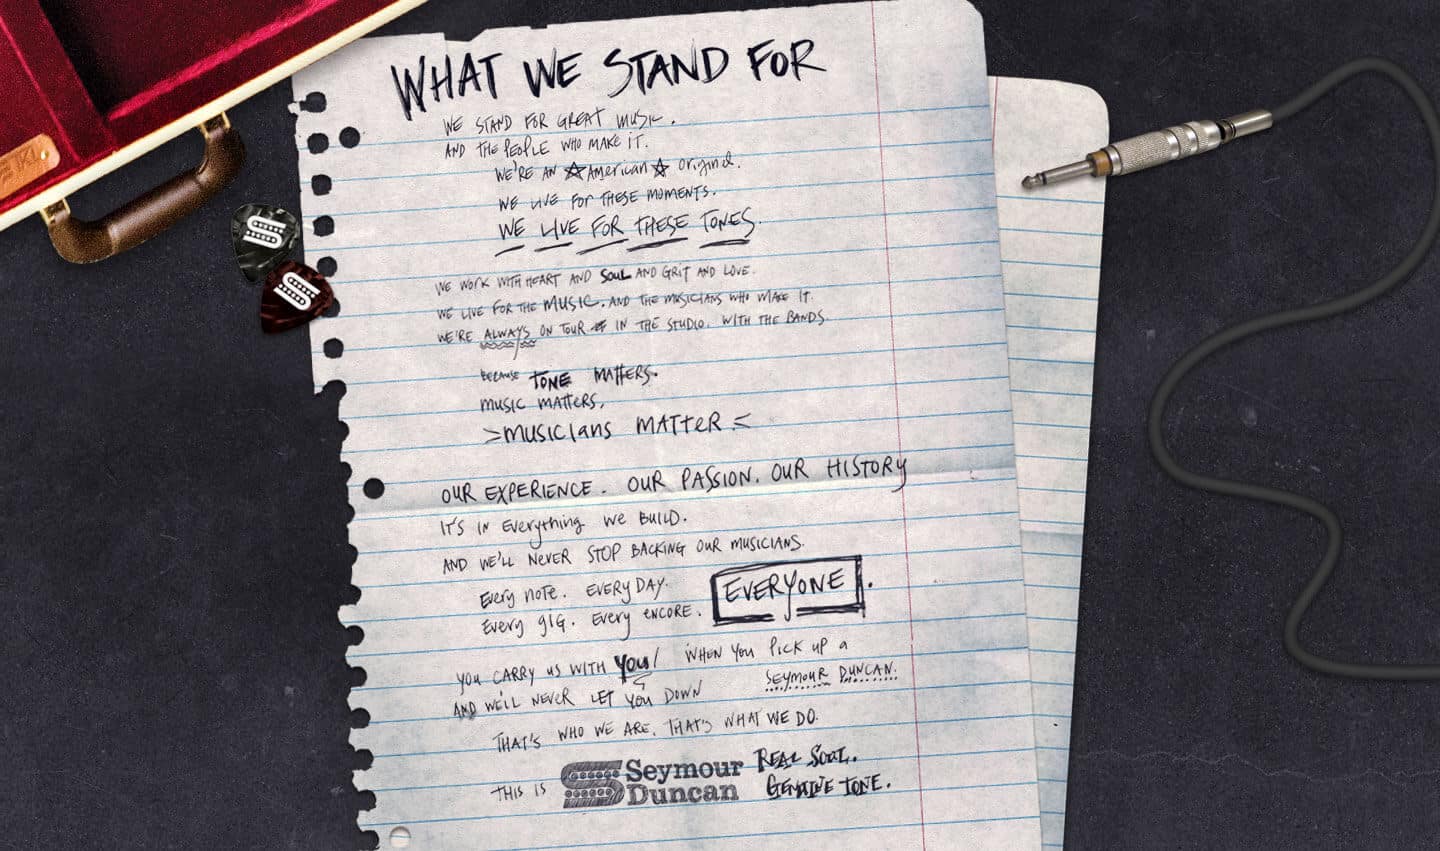 WHAT WE STAND FOR
WE STAND FOR GREAT MUSIC.
AND THE PEOPLE WHO MAKE IT.
WE'RE AN ☆ American ☆ Original.
WE LIVE FOR THESE MOMENTS.
WE LIVE FOR THESE TONES.
WE WORK WITH HEART AND SOUL AND GRIT AND LOVE.
WE LIVE FOR THE MUSIC. AND THE MUSICIANS WHO MAKE IT.
WE'RE ALWAYS ON TOUR IN THE STUDIO. WITH THE BANDS.
BECAUSE TONE MATTERS.
MUSIC MATTERS.
>MUSICIANS MATTER<
OUR EXPERIENCE. OUR PASSION. OUR HISTORY
IT'S IN EVERYTHING WE BUILD.
AND WE'LL NEVER STOP BACKING OUR MUSICIANS.
EVERY NOTE. EVERY DAY.
EVERY GIG. EVERY ENCORE. EVERYONE.
YOU CARRY US WITH YOU! WHEN YOU PICK UP A
SEYMOUR DUNCAN.
AND WE'LL NEVER LET YOU DOWN
THAT'S WHO WE ARE. THAT'S WHAT WE DO.
THIS IS Seymour Duncan REAL SOUL.
GENUINE TONE.